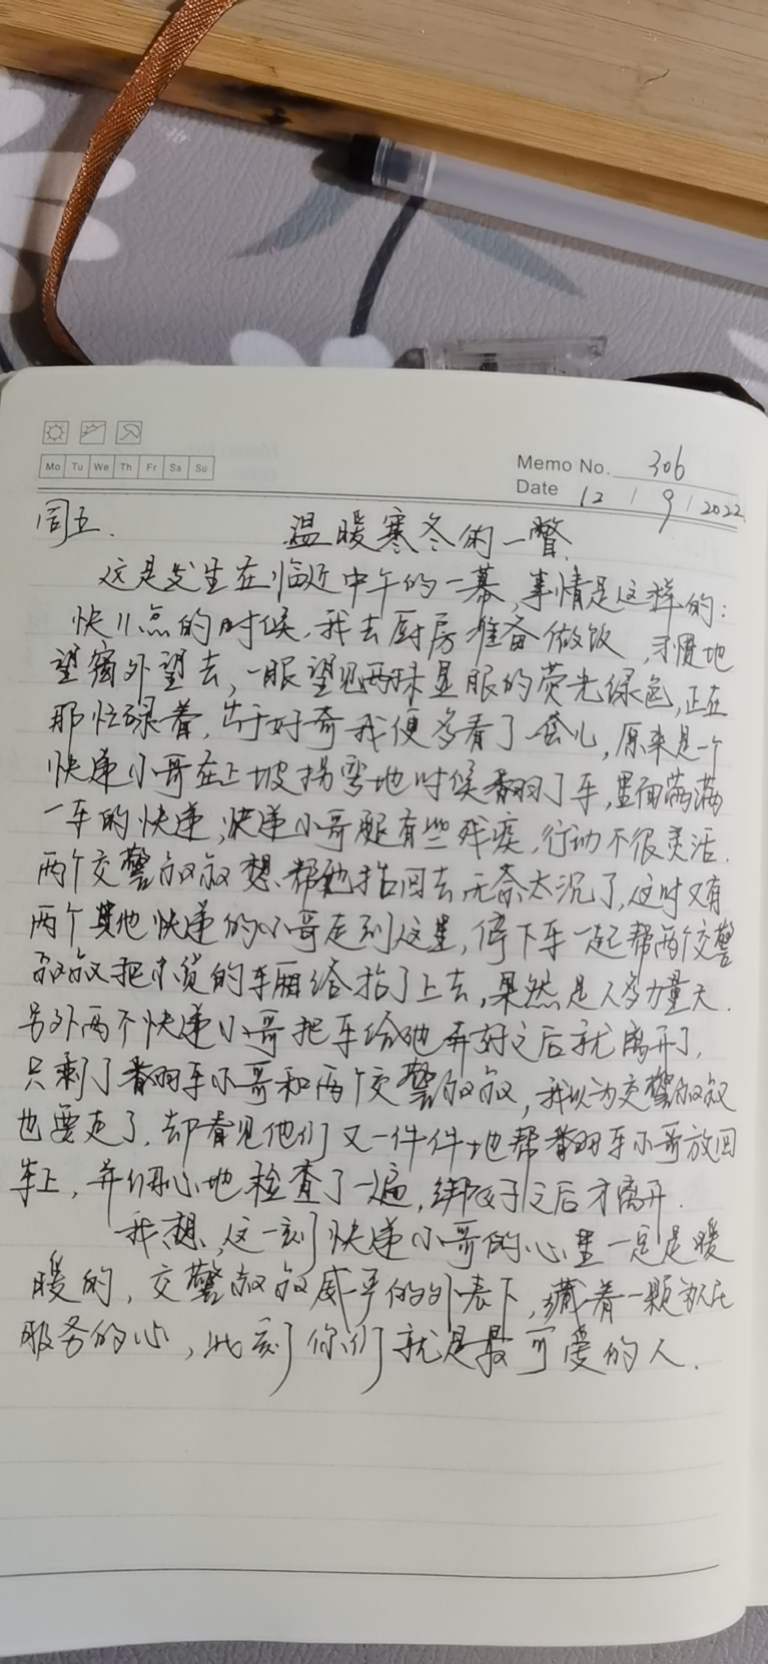 Mo Tu We Th Fr Sa Su
Memo No. 306
Date 12 / 9 / 2022
周五.
温暖寒冬的一瞥.
这是发生在临近中午的一幕,事情是这样的:
快11点的时候,我去厨房准备做饭,习惯地
望窗外望去,一眼望见两抹显眼的荧光绿色,正在
那忙碌着,出于好奇我便多看了一会儿,原来是一个
快递小哥在上坡拐弯地时候翻了车,里面满满
一车的快递,快递小哥腿有些残疾,行动不很灵活.
两个交警叔叔想帮他抬回去,无奈太沉了,这时又有
两个其他快递的小哥走到这里,停下车一起帮两个交警
叔叔把木货的车厢给抬了上去,果然是人多力量大.
另外两个快递小哥把车给他弄好之后就离开了,
只剩了翻车小哥和两个交警叔叔,我以为交警叔叔
也要走了,却看见他们又一件件地帮翻车小哥放回
车上,并细心地检查了一遍,绑好之后才离开.
我想,这一刻快递小哥的心里一定是暖
暖的,交警叔叔威严的外表下,藏着一颗为人民
服务的心,此刻你们就是最可爱的人.